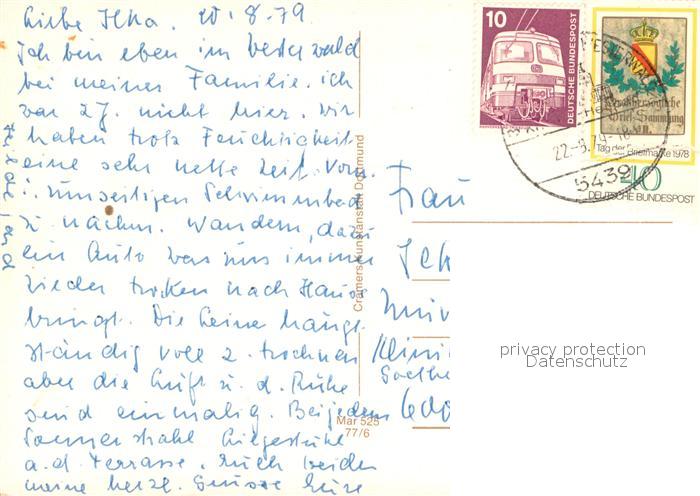 Liebe Ilka. 20.8.79
Ich bin eben im Westerwald
bei meiner Familie. ich
war 2 J. nicht hier. wir
haben trotz Feuchtigkeit
eine sehr nette Zeit. Vom
umseitigen Schwimmbad
z. nachm. Wandern, dazu
ein Auto was uns immer
wieder trocken nach Hause
bringt. Die Leine hängt
ständig voll z. trocknen
aber die Luft u. d. Ruhe
sind einmalig. Bei jedem
Sonnenstrahl Liegestühle
a. d. Terrasse. Euch beiden
meine herzl. Grüsse Eure
Cramers Kunstanstalt Dortmund
Mar 525
77/6
10
DEUTSCHE BUNDESPOST
Grossherzogliche
Briefs-Sammlung
Tag der Briefmarke 1978
40
DEUTSCHE BUNDESPOST
22.-8.79-18
5439
Frau
privacy protection
Datenschutz